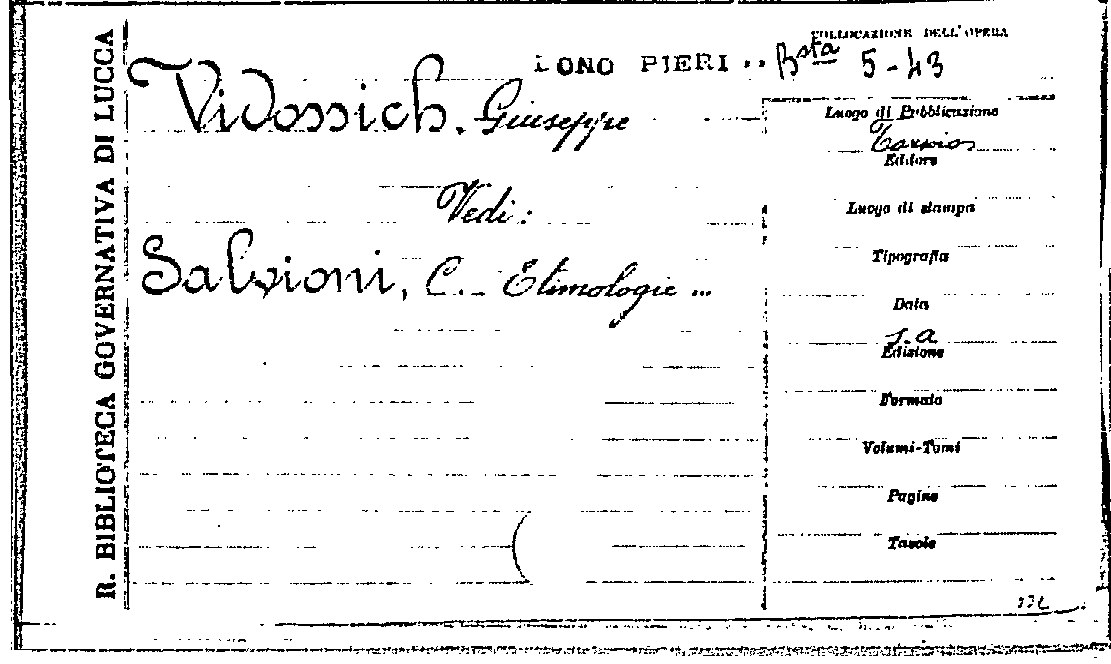 R. BIBLIOTECA GOVERNATIVA DI LUCCA
COLLOCAZIONE DELL'OPERA
DONO PIERI .. Bsta 5-43
Vidossich, Giuseppe
Vedi:
Salvioni, C. - Etimologie ...
Luogo di Pubblicazione
Editore
Luogo di stampa
Tipografia
Data
s.a
Edizione
Formato
Volumi-Tomi
Pagine
Tavole